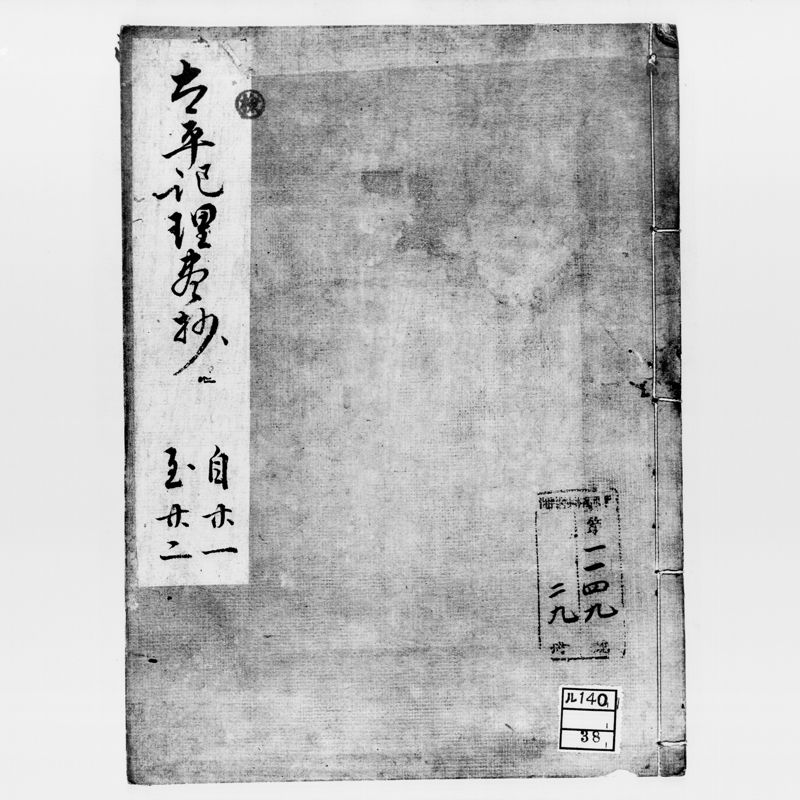 太平記理盡抄
自廿一
至廿二
第一一四九號
二九冊
ル140
38